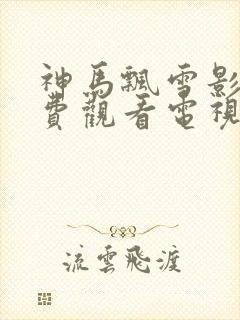 神馬飄雪影
費觀看電視
流雲飛渡